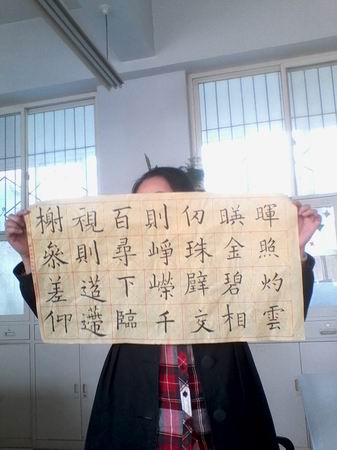 榭參差仰
視則迢遰
百尋下臨
則崢嶸千
仞珠璧交
暎金碧相
暉照灼雲